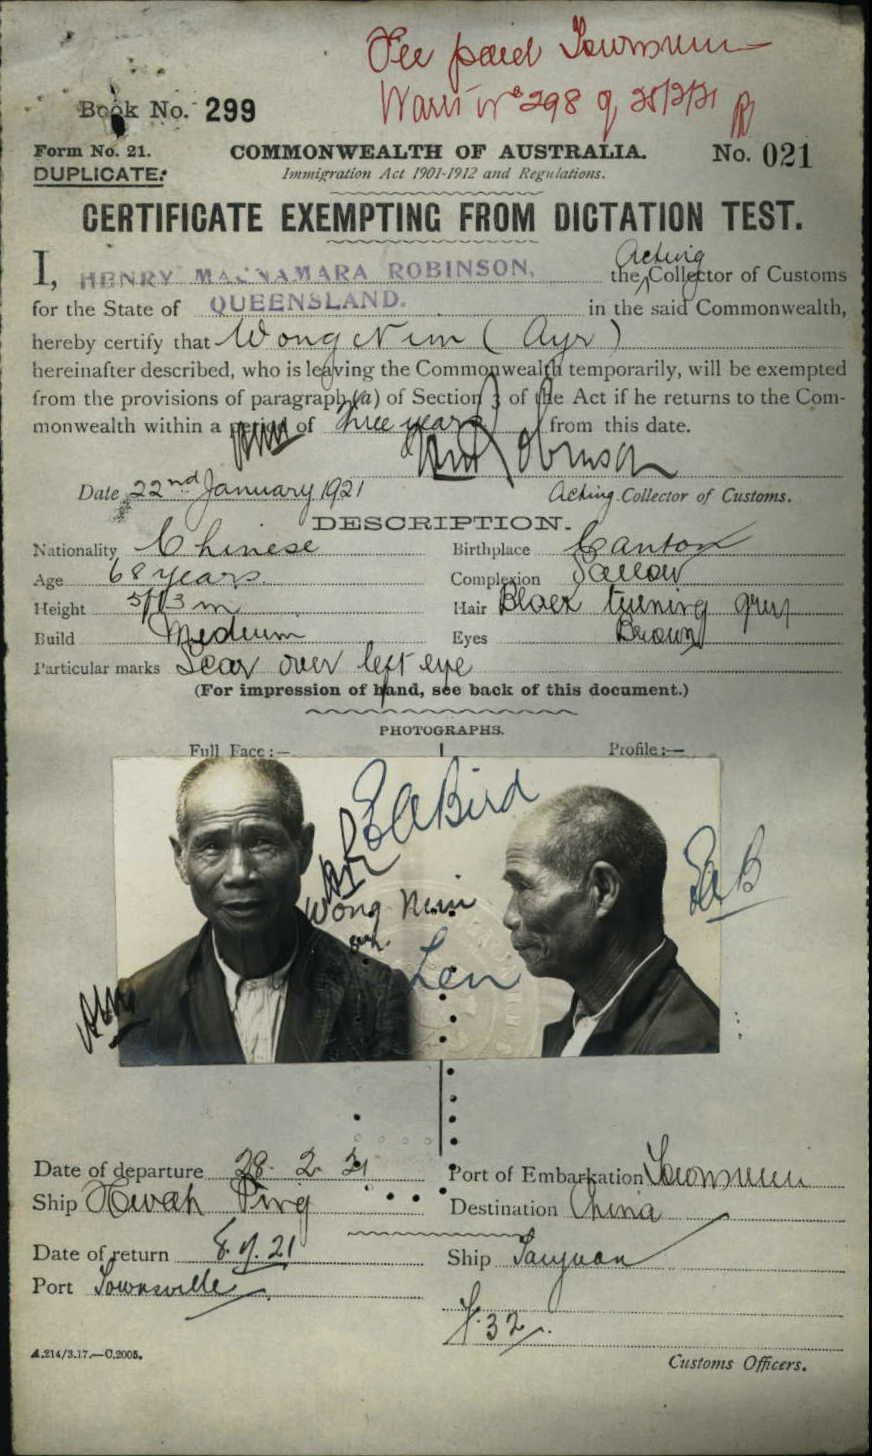 Fee paid Townsville
Warrt No 298 of 28/2/21
Book No. 299
Form No. 21.
COMMONWEALTH OF AUSTRALIA.
No. 021
DUPLICATE.
Immigration Act 1901-1912 and Regulations.
CERTIFICATE EXEMPTING FROM DICTATION TEST.
I, HENRY MACNAMARA ROBINSON, the Acting Collector of Customs
for the State of QUEENSLAND. in the said Commonwealth,
hereby certify that Wong Nim (Ayr)
hereinafter described, who is leaving the Commonwealth temporarily, will be exempted
from the provisions of paragraph (a) of Section 3 of the Act if he returns to the Com-
monwealth within a period of three years from this date.
Robinson
Date 22nd January 1921
Acting Collector of Customs.
DESCRIPTION.
Nationality Chinese
Birthplace Canton
Age 68 years
Complexion Sallow
Height
Hair Black turning grey
Build Medium
Eyes Brown
Particular marks Scar over left eye
(For impression of hand, see back of this document.)
PHOTOGRAPHS.
Full Face:—
Profile:—
EABird
EAB
Wong Nim
Len
Date of departure 28. 2. 21
Port of Embarkation Townsville
Ship Hwah Ping
Destination China
Date of return 8.9.21
Ship Taiyuan
Port Townsville
32
A.214/3.17.—C.2005.
Customs Officers.